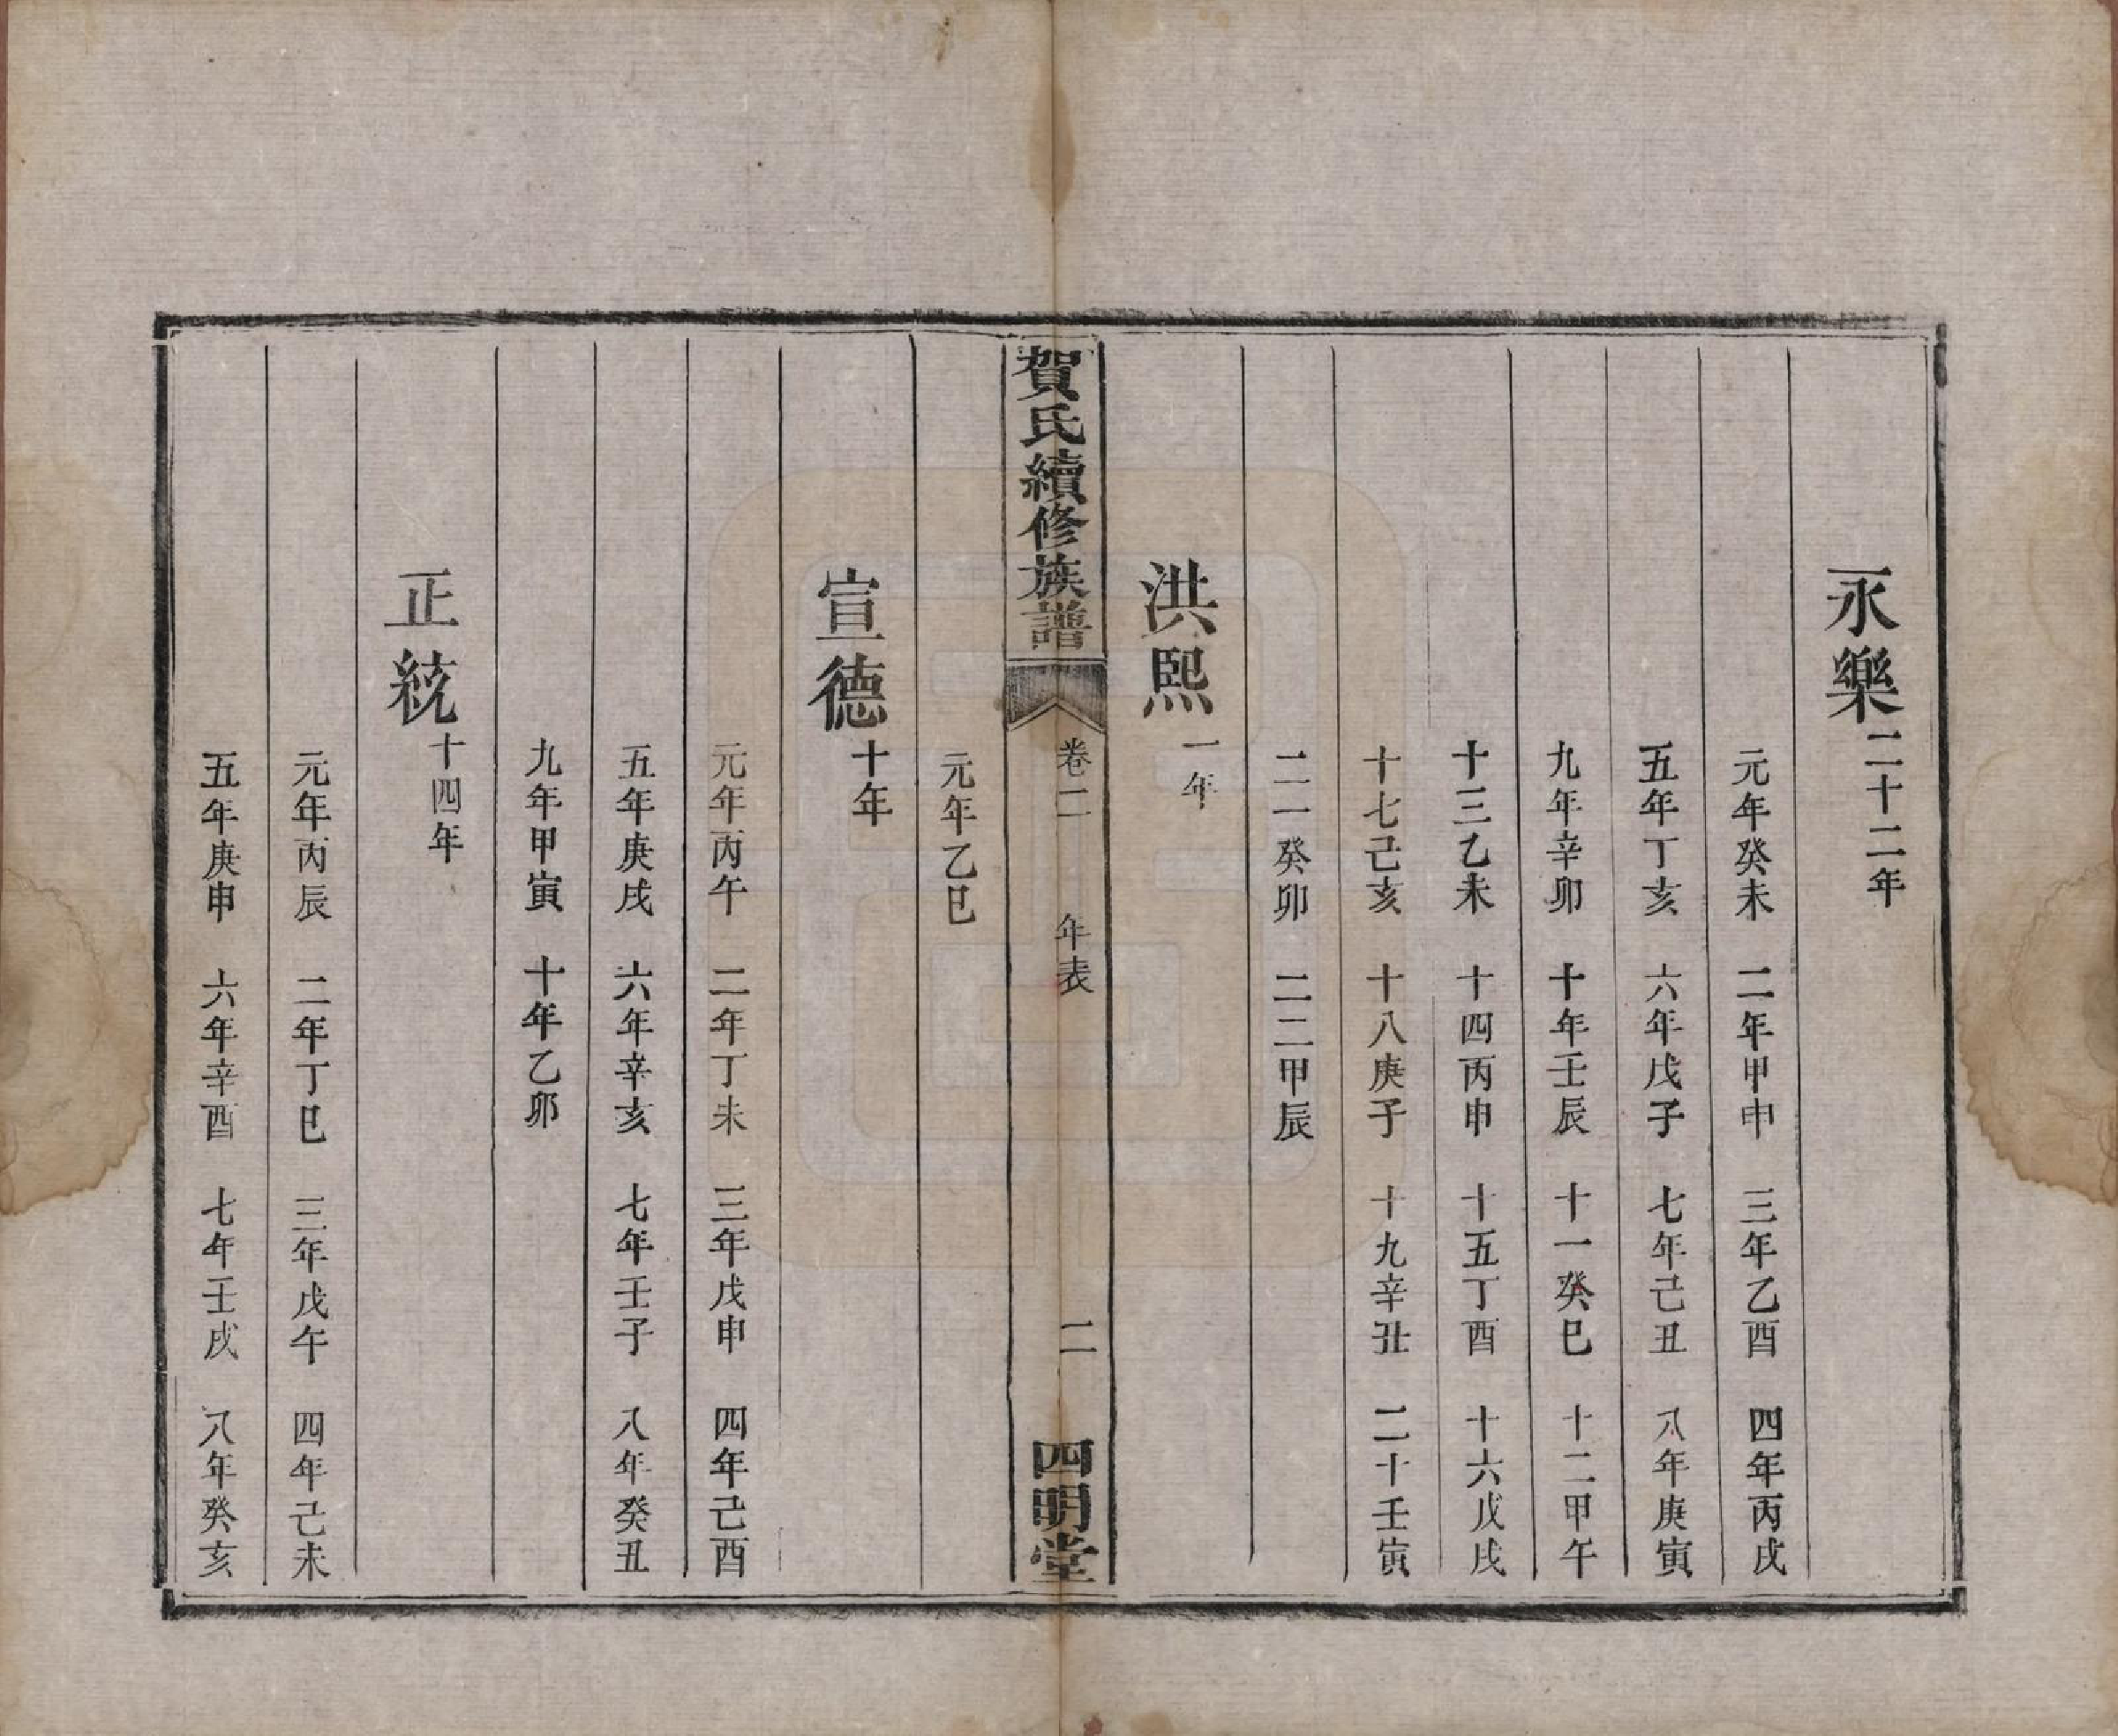 永樂二十二年
元年癸未　二年甲申　三年乙酉　四年丙戌
五年丁亥　六年戊子　七年己丑　八年庚寅
九年辛卯　十年壬辰　十一癸巳　十二甲午
十三乙未　十四丙申　十五丁酉　十六戊戌
十七己亥　十八庚子　十九辛丑　二十壬寅
二一癸卯　二二甲辰
洪熙一年
賀氏續修族譜　卷二　年表　二　四明堂
元年乙巳
宣德十年
元年丙午　二年丁未　三年戊申　四年己酉
五年庚戌　六年辛亥　七年壬子　八年癸丑
九年甲寅　十年乙卯
正統十四年
元年丙辰　二年丁巳　三年戊午　四年己未
五年庚申　六年辛酉　七年壬戌　八年癸亥